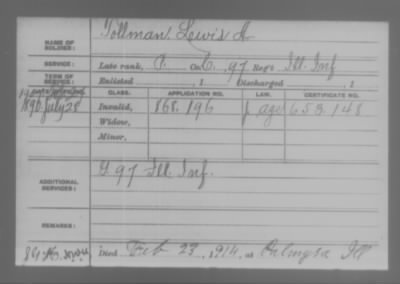 NAME OF SOLDIER: Tollman Lewis A
SERVICE: Late rank, P. Co. C, 97 Reg't Ill. Inf
TERM OF SERVICE: Enlisted , 1 Discharged , 1
CLASS. APPLICATION NO. LAW. CERTIFICATE NO.
1890 July 28 Invalid, 868.196 653.148
Widow,
Minor,
ADDITIONAL SERVICES: G. 97 Ill. Inf.
REMARKS:
Died Feb 23, 1914, at Ill